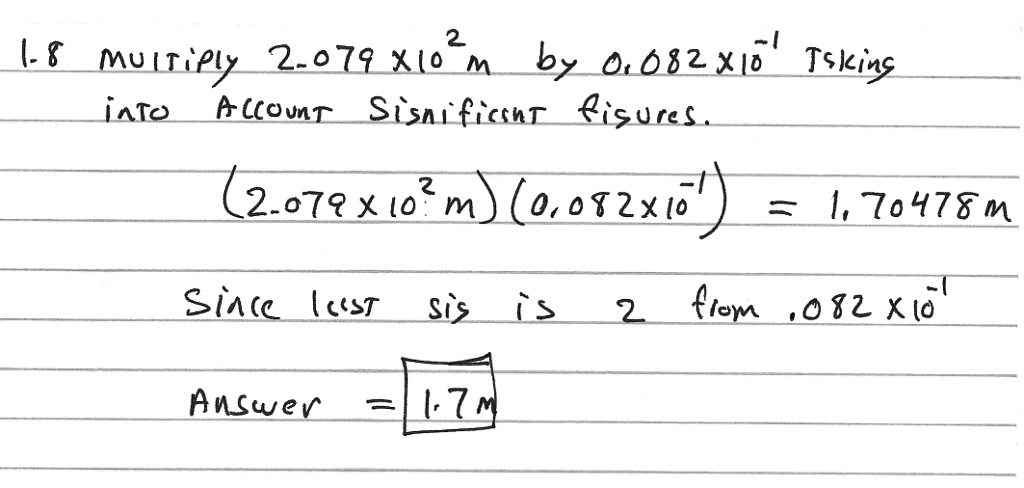 1.8 Multiply 2.079 x 10² m by 0.082 x 10⁻¹ Taking
into Account Significant figures.
(2.079 x 10² m) (0.082 x 10⁻¹) = 1.70478 m
Since least sig is 2 from .082 x 10⁻¹
Answer = 1.7 m